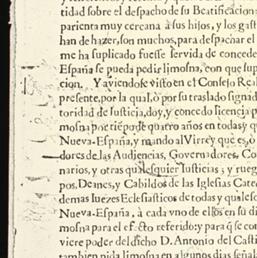 tidad sobre el despacho de su Beatificacion
parienta muy cercana à sus hijos, y los gast
han de hazer, son muchos, para despachar el
me ha suplicado fuesse servida de concede
España se pueda pedir limosna, con que sup
cion. Y aviendose visto en el Consejo Real
presente, por la qual, ò por su traslado signad
toridad de justicia, doy, y concedo licencia p
mosna por tiépo de quatro años en todas y qu
Nueva-España, y mando al Virrey que es, ò
dores de las Audiencias, Governadores, Co
narios, y otras qualesquier Iusticias; y rueg
pos, Deanes, y Cabildos de las Iglesias Cate
demas Iuezes Eclesiasticos de todas y quales
Nueva-España, à cada vno de ellos en su di
mosna para el efecto referido; y para q̃ se con
viere poder del dicho D. Antonio del Casti
tambien pida limosna en algunos dias se